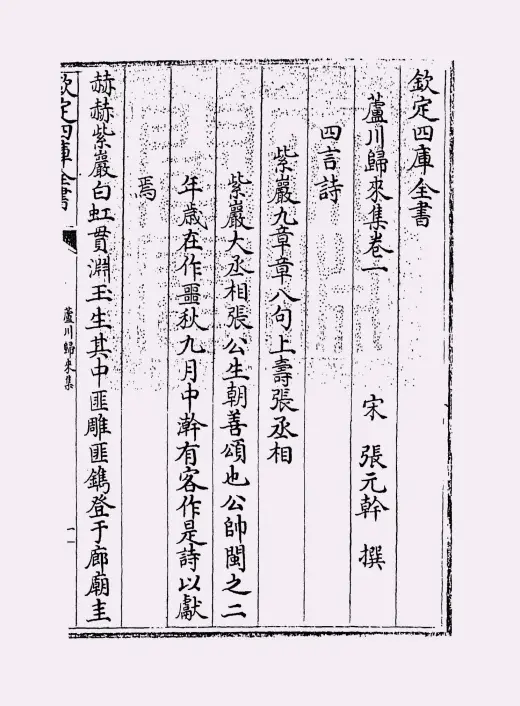 欽定四庫全書
蘆川歸來集卷一
宋 張元幹 撰
四言詩
紫巖九章章八句上壽張丞相
紫巖大丞相張公生朝善頌也公帥閩之二
年歲在作噩秋九月中澣有客作是詩以獻
焉
赫赫紫巖白虹貫淵玉生其中匪雕匪鐫登于廊廟圭
欽定四庫全書
蘆川歸來集